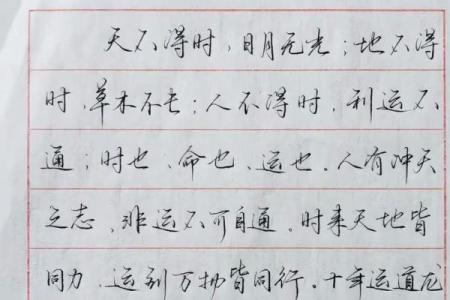 天不得时,日月无光;地不得
时,草木不长;人不得时,利运不
通;时也、命也、运也.人有冲天
之志,非运不可自通.时来天地皆
同力、运到万物皆同行.十年运道龙